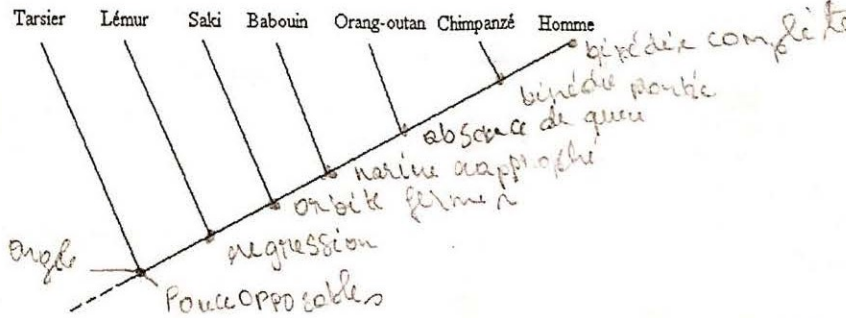 Tarsier Lémur Saki Babouin Orang-outan Chimpanzé Homme
bipédie complète
bipédie
absence de queu
narine rapproché
orbite fermer
regression
ongle
Pouce opposables